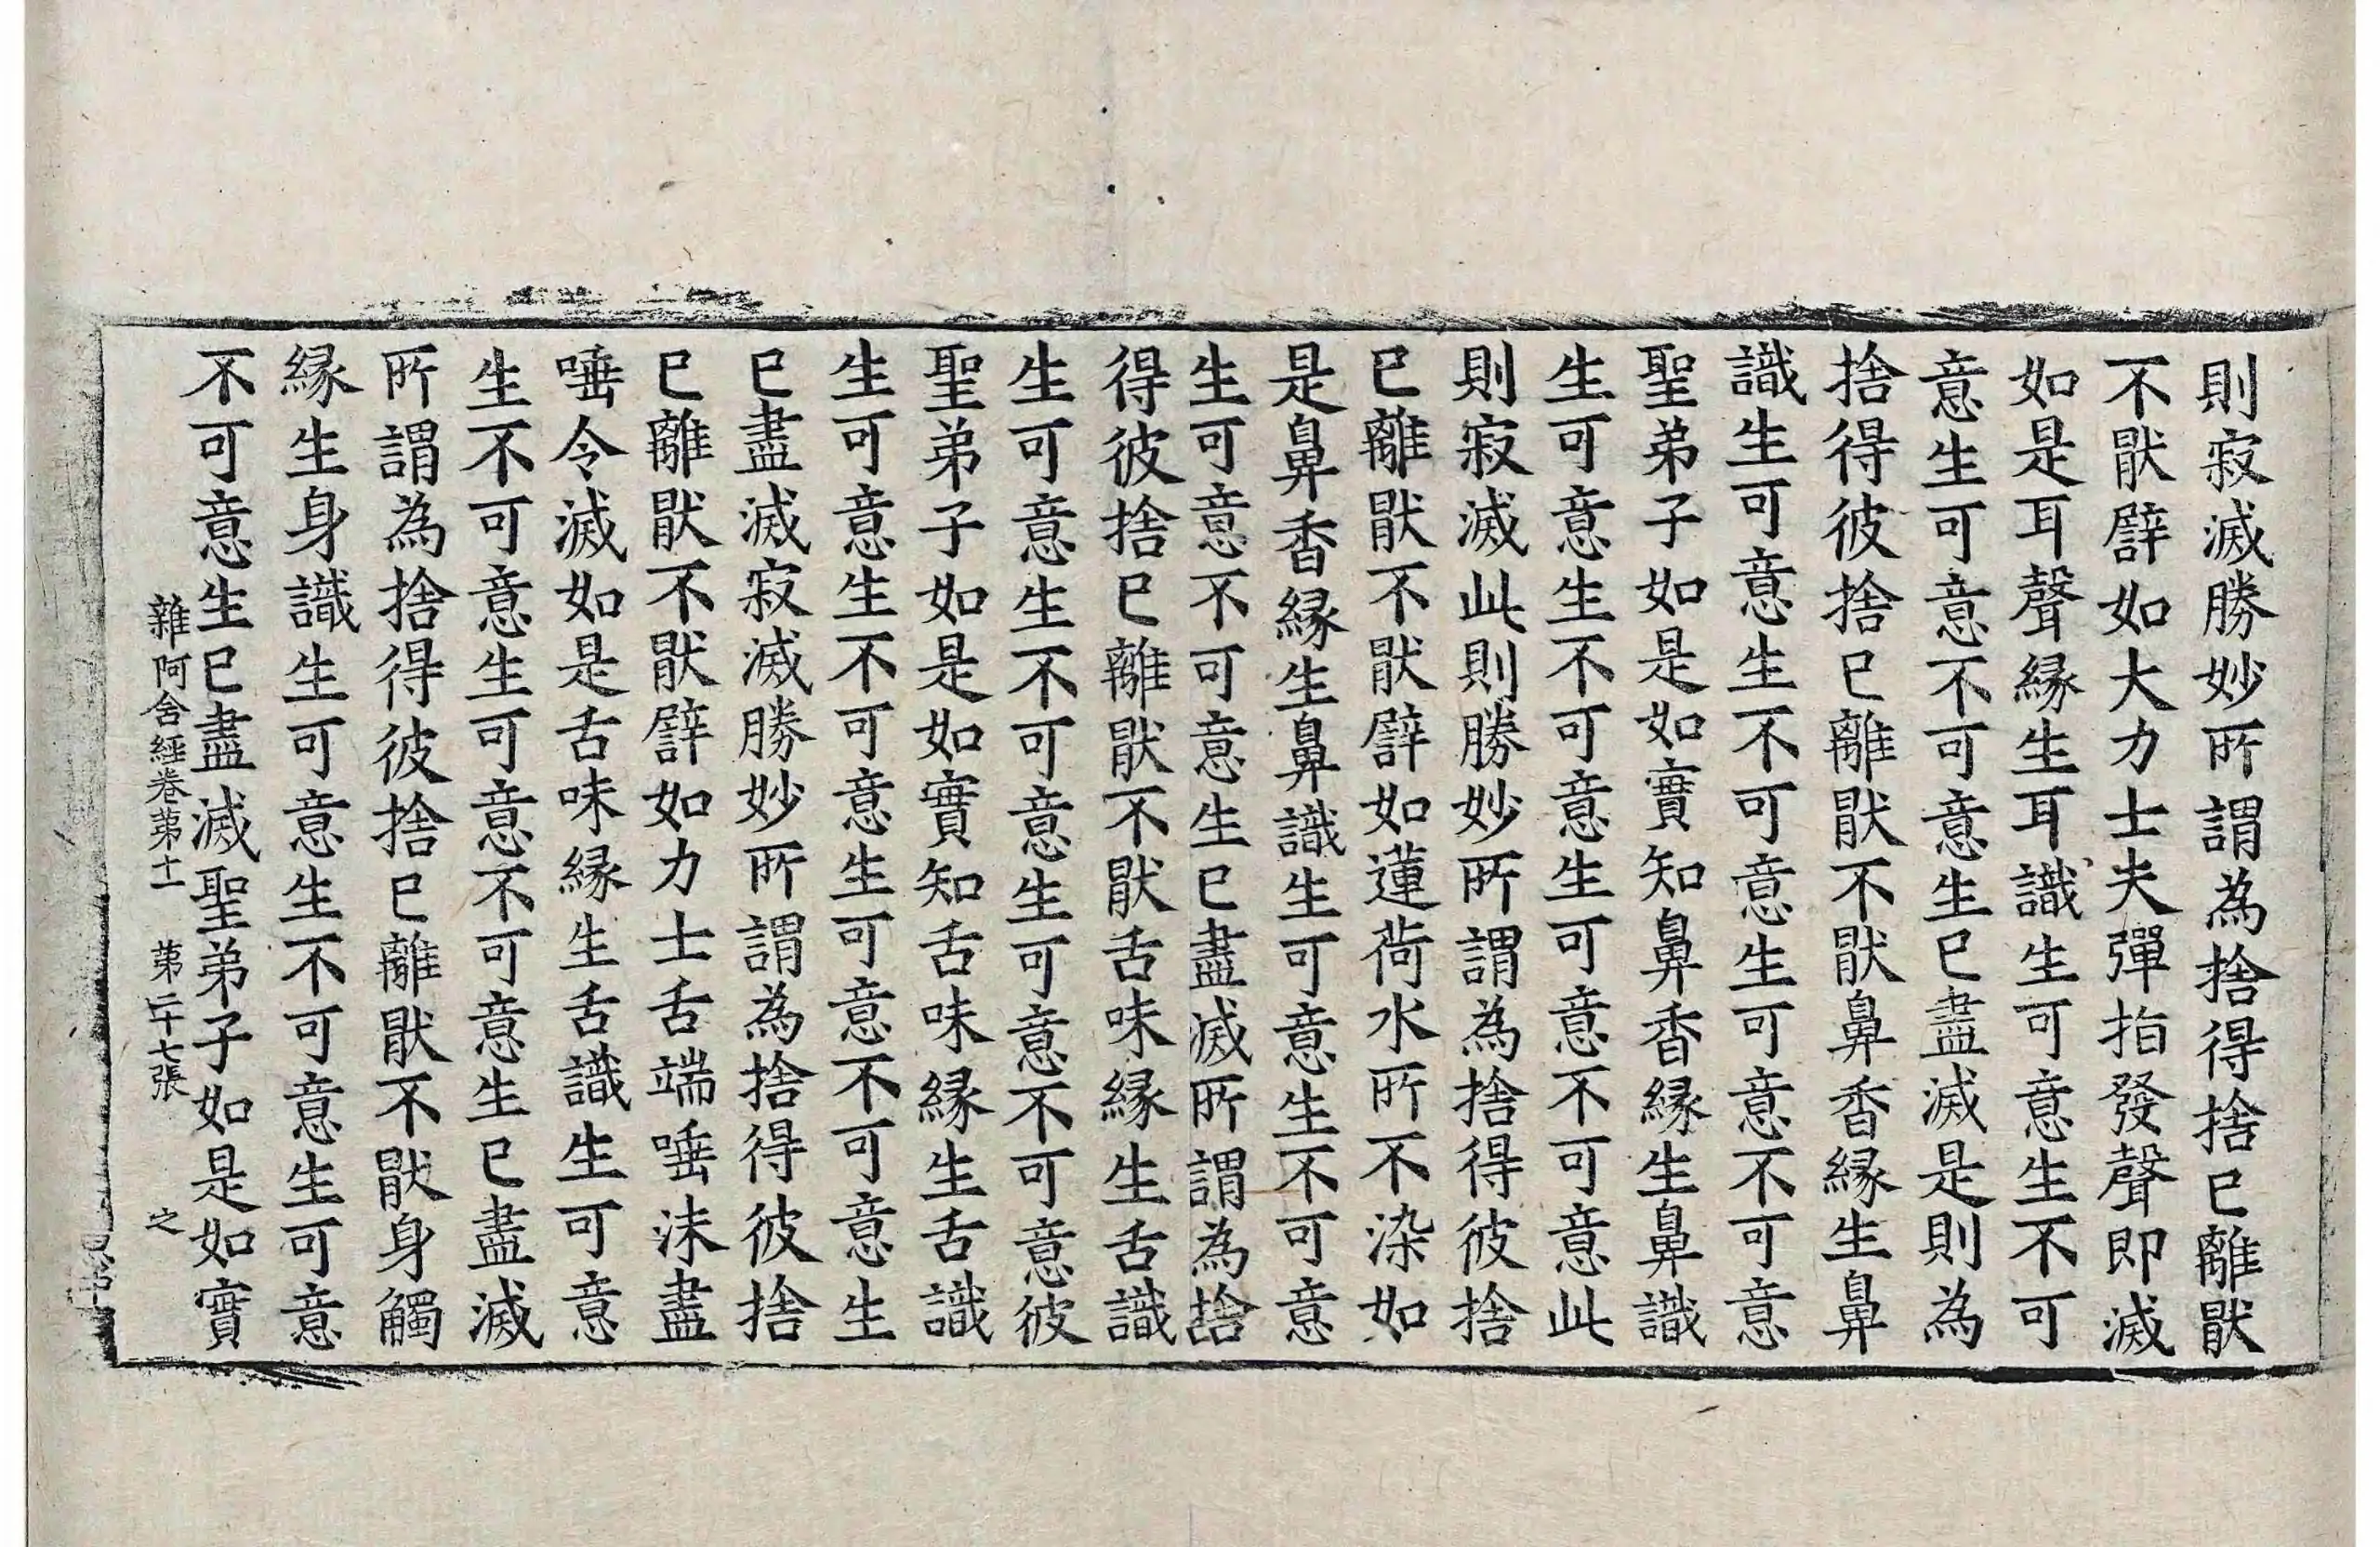 則寂滅勝妙所謂為捨得捨已離猒
不猒譬如大力士夫彈指發聲即滅
如是耳聲縁生耳識生可意生不可
意生可意不可意生已盡滅是則為
捨得彼捨已離猒不猒鼻香縁生鼻
識生可意生不可意生可意不可意
聖弟子如是如實知鼻香縁生鼻識
生可意生不可意生可意不可意此
則寂滅此則勝妙所謂為捨得彼捨
已離猒不猒譬如蓮荷水所不染如
是鼻香縁生鼻識生可意生不可意
生可意不可意生已盡滅所謂為捨
得彼捨已離猒不猒舌味縁生舌識
生可意生不可意生可意不可意彼
聖弟子如是如實知舌味縁生舌識
生可意生不可意生可意不可意生
已盡滅寂滅勝妙所謂為捨得彼捨
已離猒不猒譬如力士舌端唾沫盡
唾令滅如是舌味縁生舌識生可意
生不可意生可意不可意生已盡滅
所謂為捨得彼捨已離猒不猒身觸
縁生身識生可意生不可意生可意
不可意生已盡滅聖弟子如是如實
雜阿含經卷苐十一　苐二十七張　之